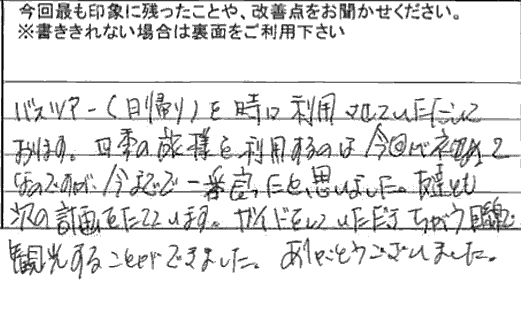 今回最も印象に残ったことや、改善点をお聞かせください。
※書ききれない場合は裏面をご利用下さい
バスツアー(日帰り)を時々利用させていただいて
おります。四季の旅様を利用するのは今回が初めて
なのですが、今までで一番良かったと思いました。友達とも
次の計画をたてています。ガイドをしていただきちがう目線で
観光することができました。ありがとうございました。